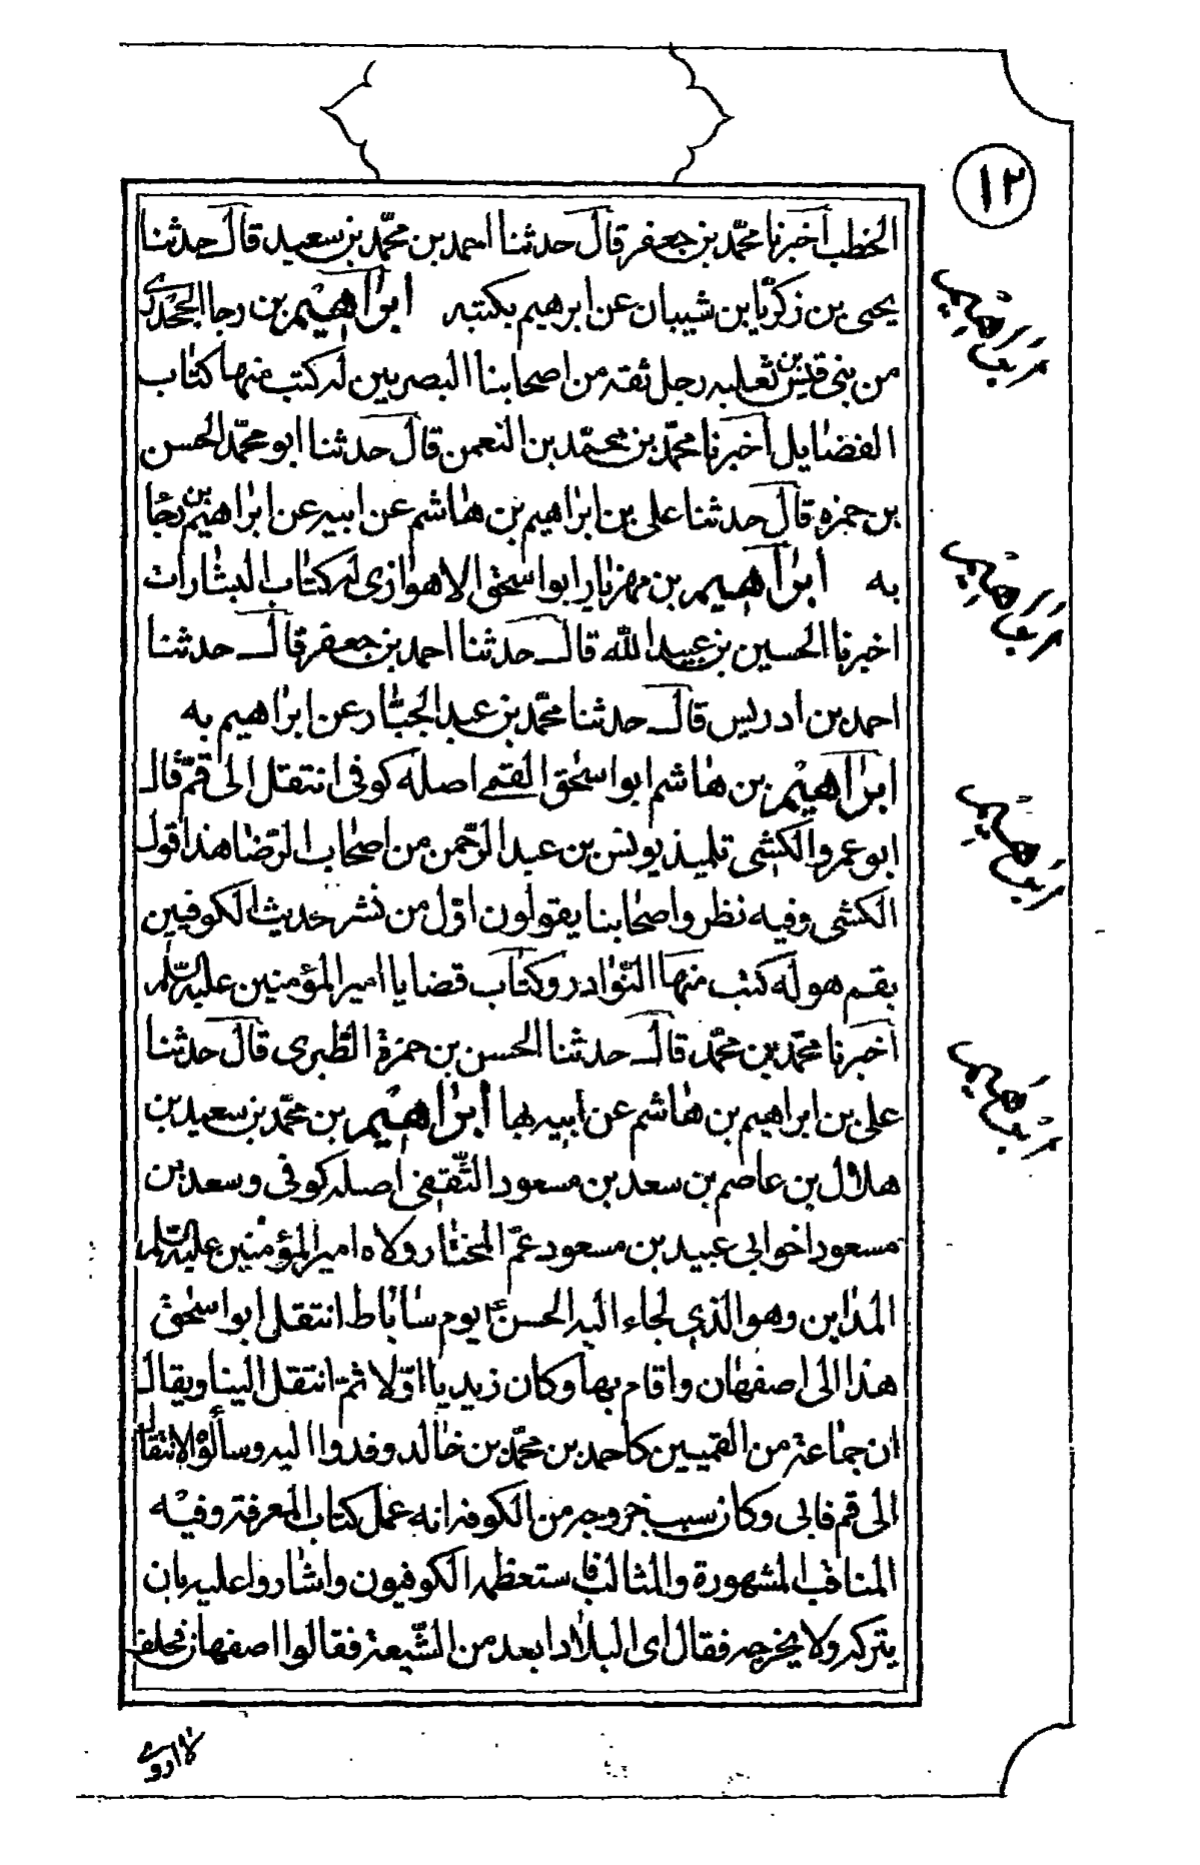 ١٢
الخطب أخبرنا محمّد بن جعفر قال حدثنا احمد بن محمّد بن سعيد قال حدثنا
يحيى بن زكريّا بن شيبان عن ابرهيم بكتبه ابراهيم بن رجا الجحدرى
من بنى قيس بن ثعلبه رجل ثقه من اصحابنا البصريين له كتب منها كتاب
الفضايل أخبرنا محمّد بن محمّد بن النعمن قال حدثنا ابو محمّد الحسن
بن حمزه قال حدثنا على بن ابراهيم بن هاشم عن ابيه عن ابراهيم بن رجا
به ابراهيم بن مهزيار ابو اسحق الاهوازى له كتاب البشارات
اخبرنا الحسين بن عبيد الله قال حدثنا احمد بن جعفر قال حدثنا
احمد بن ادريس قال حدثنا محمّد بن عبد الجبّار عن ابراهيم به
ابراهيم بن هاشم ابو اسحق القمى اصله كوفى انتقل الى قمّ قال
ابو عمرو الكشى تلميذ يونس بن عبد الرّحمن من اصحاب الرّضا هذا قول
الكشى وفيه نظر واصحابنا يقولون اوّل من نشر حديث الكوفيين
بقم هو له كتب منها النّوادر وكتاب قضايا امير المؤمنين عليه السّلم
أخبرنا محمّد بن محمّد قال حدثنا الحسن بن حمزة الطّبرى قال حدثنا
على بن ابراهيم بن هاشم عن أبيه بها ابراهيم بن محمّد بن سعيد بن
هلال بن عاصم بن سعد بن مسعود الثّقفى اصله كوفى وسعد بن
مسعود اخو ابى عبيد بن مسعود عمّ المختار ولاه امير المؤمنين عليه السّلم
المداين وهو الذى لجاء اليه الحسن ع يوم ساباط انتقل ابو اسحق
هذا الى اصفهان واقام بها وكان زيديا اوّلا ثم انتقل الينا ويقال
ان جماعة من القميين كاحمد بن محمّد بن خالد وفدوا اليه وسألوه الانتقال
الى قم فابى وكان سبب خروجه من الكوفه انه عمل كتاب المعرفة وفيه
المناقب المشهورة والمثالب فاستعظمه الكوفيون واشاروا عليه بان
يتركه ولا يخرجه فقال اى البلاد ابعد من الشّيعة فقالوا اصفهان فحلف
ابراهيم
ابراهيم
ابراهيم
ابراهيم
لا اروى